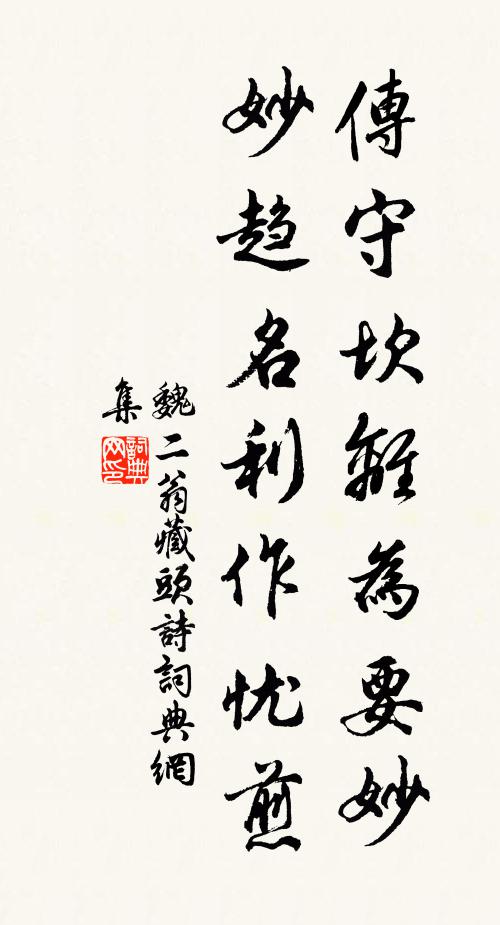 傳守坎離為要妙
妙趋名利作忧煎
魏二翁藏頭詩詞典網
集
詞典网印